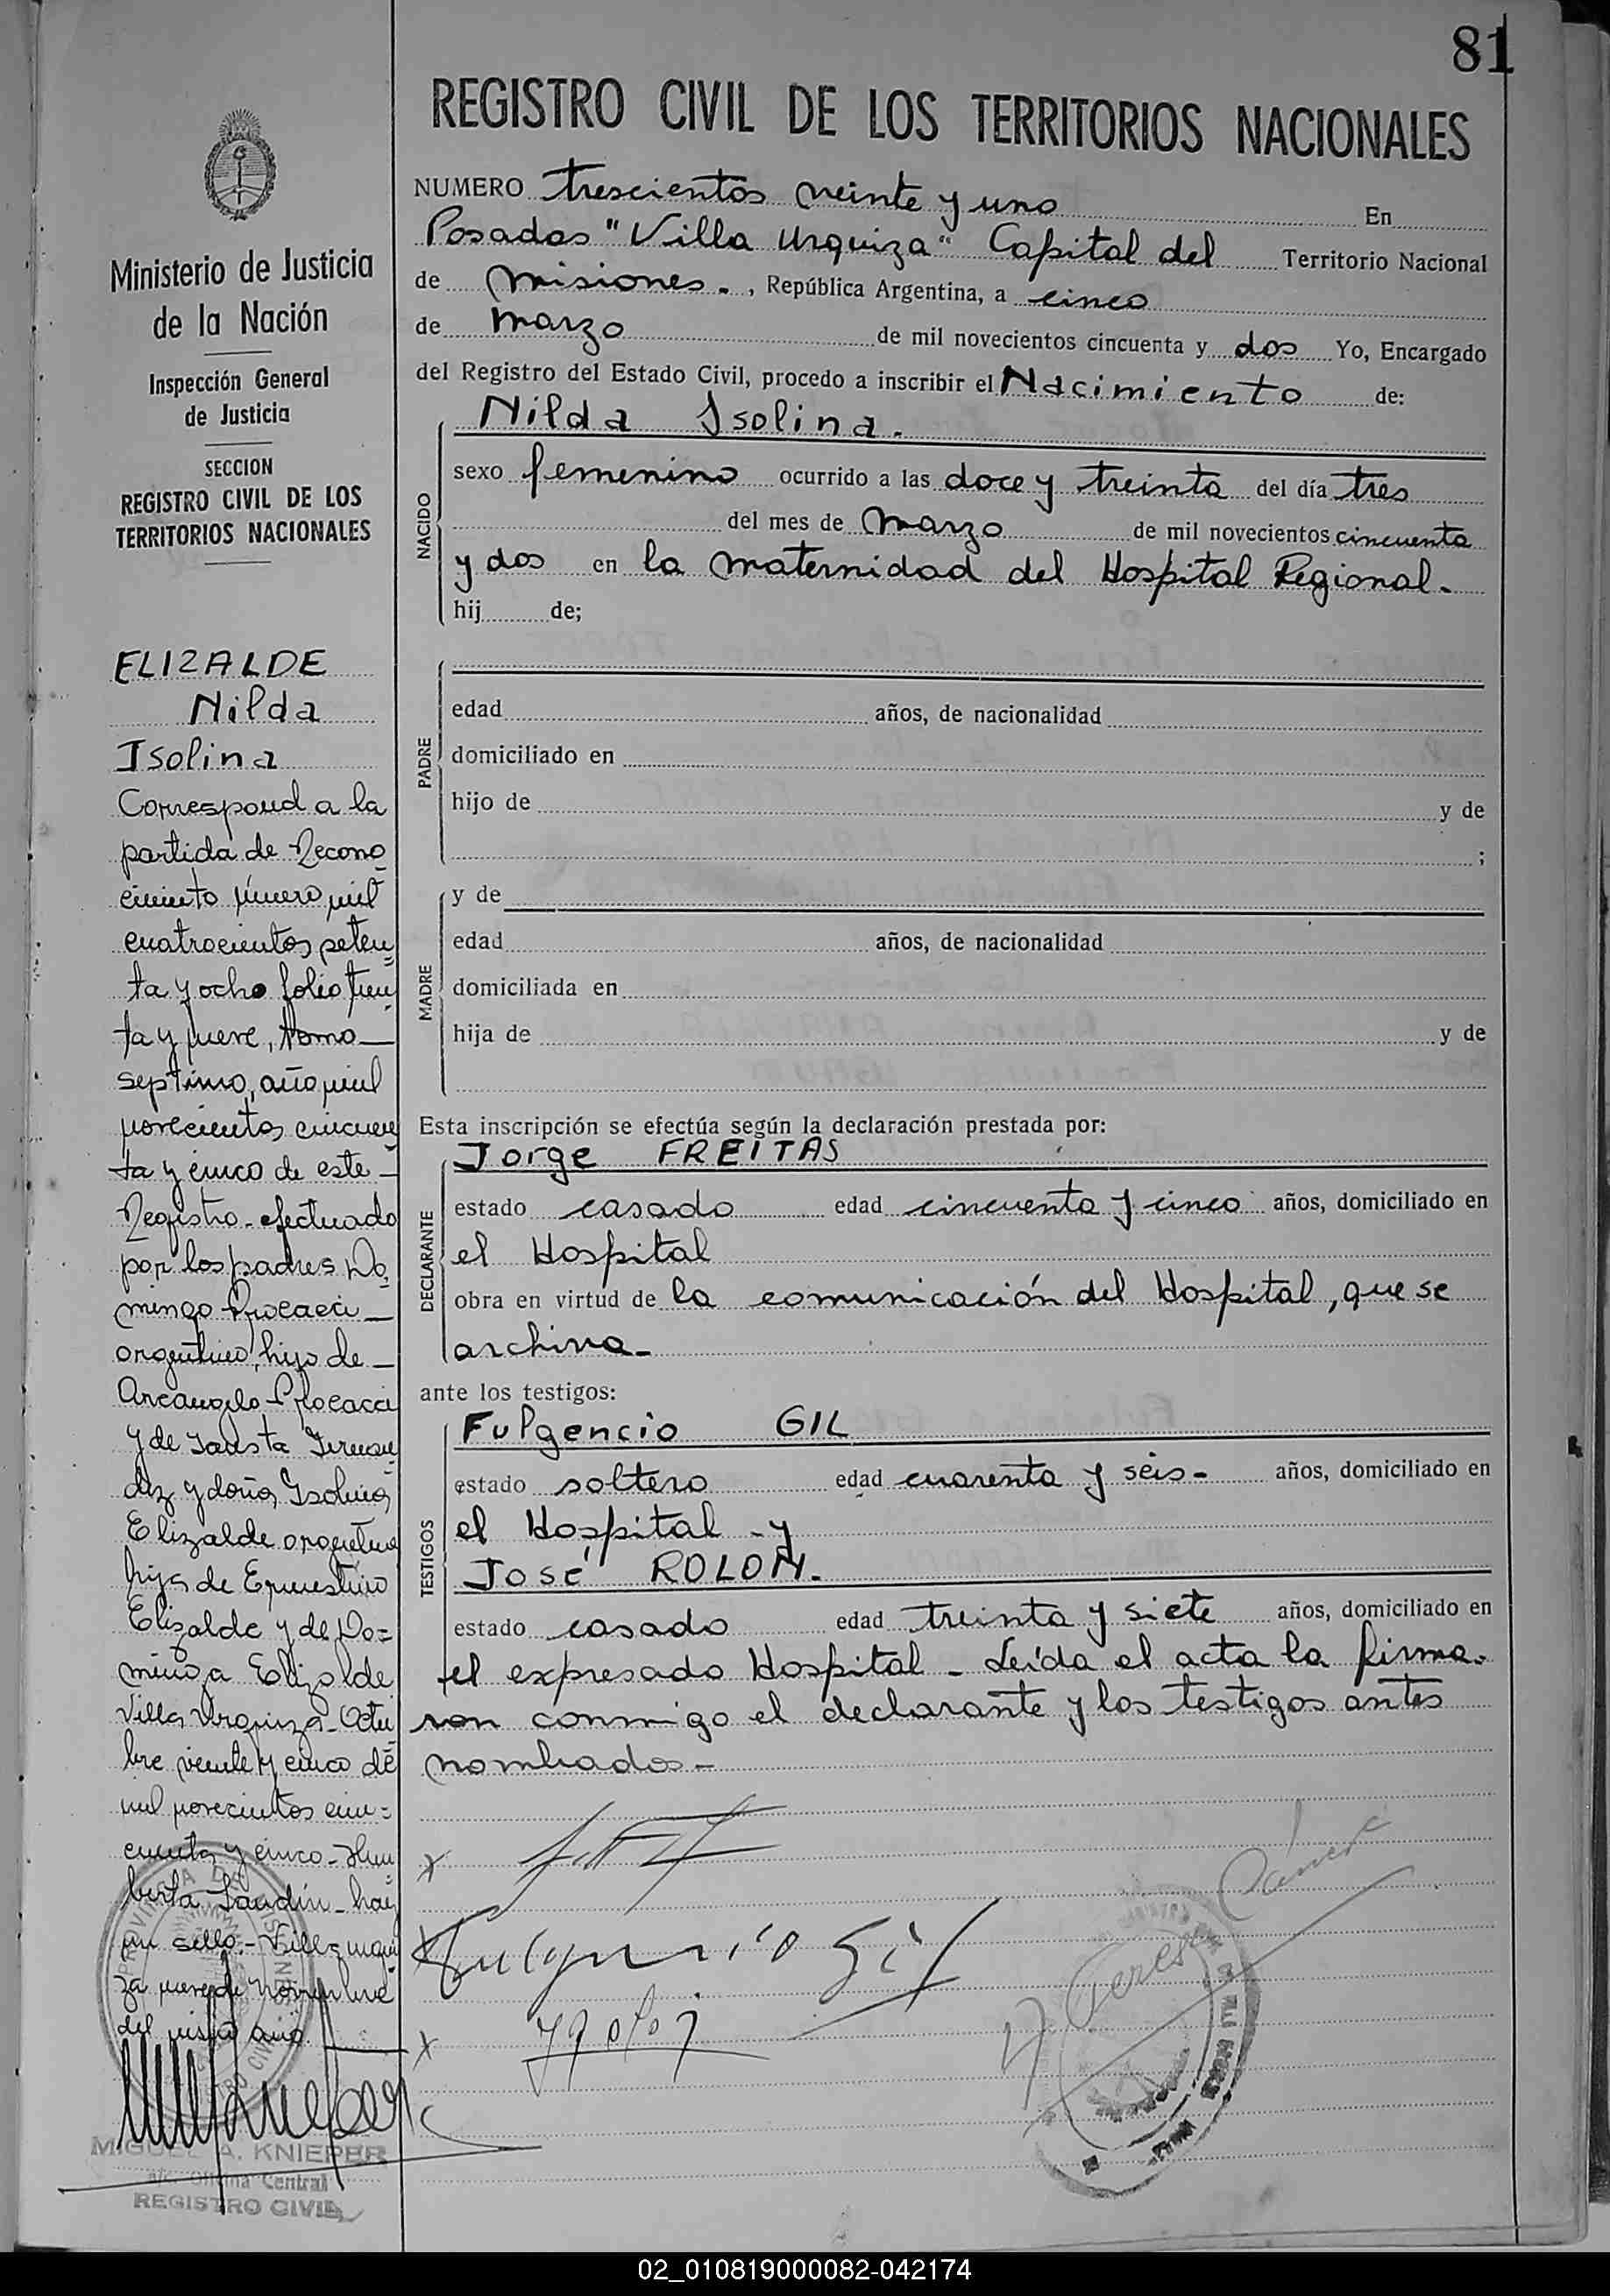 81
REGISTRO CIVIL DE LOS TERRITORIOS NACIONALES
NUMERO trescientos veinte y uno En
Posadas "Villa Urquiza" Capital del Territorio Nacional
de Misiones. , República Argentina, a cinco
de marzo de mil novecientos cincuenta y dos Yo, Encargado
del Registro del Estado Civil, procedo a inscribir el Nacimiento de:
NACIDO
Nilda Isolina.
sexo femenino ocurrido a las doce y treinta del día tres
del mes de marzo de mil novecientos cincuenta
y dos en la maternidad del Hospital Regional.
hij de;
PADRE
edad años, de nacionalidad
domiciliado en
hijo de y de
;
MADRE
y de
edad años, de nacionalidad
domiciliada en
hija de y de
Esta inscripción se efectúa según la declaración prestada por:
DECLARANTE
Jorge FREITAS
estado casado edad cincuenta y cinco años, domiciliado en
el Hospital
obra en virtud de la comunicación del Hospital, que se
archiva-
ante los testigos:
TESTIGOS
Fulgencio GIL
estado soltero edad cuarenta y seis- años, domiciliado en
el Hospital - y
José ROLON.
estado casado edad treinta y siete años, domiciliado en
el expresado Hospital - Leída el acta la firma-
ron conmigo el declarante y los testigos antes
nombrados-
x
Fulgencio Gil
x
Ministerio de Justicia
de la Nación
Inspección General
de Justicia
SECCION
REGISTRO CIVIL DE LOS
TERRITORIOS NACIONALES
ELIZALDE
Nilda
Isolina
Correspond a la
partida de Recono
cimiento número mil
cuatrocientos seten
ta y ocho folio trein
ta y nueve, tomo
septimo, año mil
novecientos cincuen
ta y cinco de este
Registro - efectuado
por los padres Do
mingo Procacci
argentino, hijo de
Arcangelo Procacci
y de Fausta Fernan
dez y doña Isolina
Elizalde argentina
hija de Ernestino
Elizalde y de Do=
minga Elizalde
Villa Urquiza - Octu
bre veinte y cinco de
mil novecientos cin=
cuenta y cinco - Hum
berto Landín - hay
un sello - Villa Urqui
za nueve de Noviembre
del mismo año.
MIGUEL A. KNIEPER
Oficina Central
REGISTRO CIVIL
02_010819000082-042174